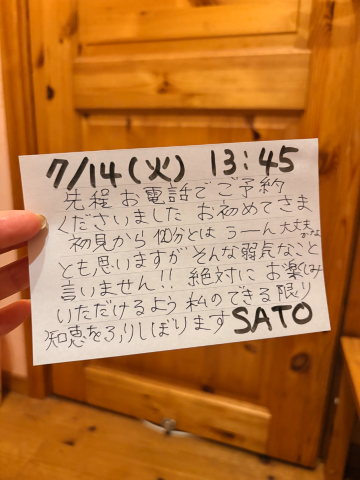 7/14(火) 13:45
先程 お電話で ご予約
くださいました お初めてさま
初見から 120分とは うーん 大丈夫かな
とも思いますが そんな弱気なこと
言いません!! 絶対に お楽しみ
いただけるよう 私のできる限り
知恵をふりしぼります SATO